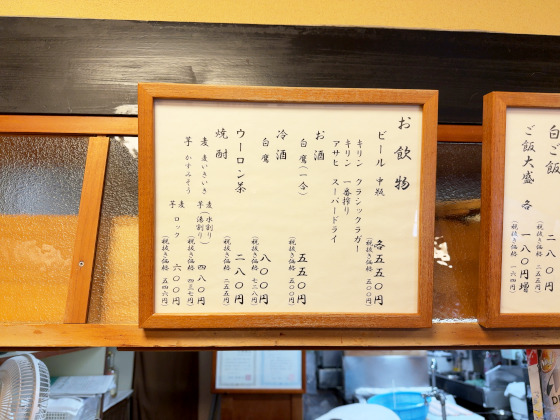 お飲物
ビール 中瓶 各五五〇円
(税抜き価格 五〇〇円)
キリン クラシックラガー
キリン 一番搾り
アサヒ スーパードライ
お酒
白鹿(一合) 五五〇円
(税抜き価格 五〇〇円)
冷酒
白鹿 八〇〇円
(税抜き価格 七二八円)
ウーロン茶 二八〇円
(税抜き価格 二五五円)
焼酎
麦 麦いきいき
芋 かすみそう
麦(水割り)
芋(湯割り) 四八〇円
(税抜き価格 四三七円)
麦
芋 ロック 六〇〇円
(税抜き価格 五四六円)
白ご飯 二八〇円
(税抜き価格 二五五円)
ご飯大盛 各 一八〇円増
(税抜き価格 一六四円)